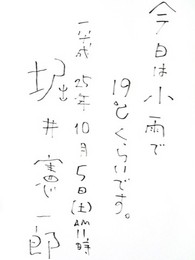 今日は小雨で
19℃くらいです。
平成25年10月5日(土)AM11時
堀井憲一郎